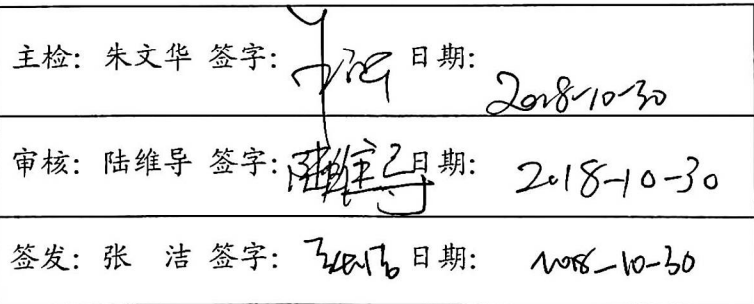 主检：朱文华 签字： 日期：2018-10-30
审核：陆维导 签字：陆维导 日期：2018-10-30
签发：张 洁 签字： 日期：2018-10-30